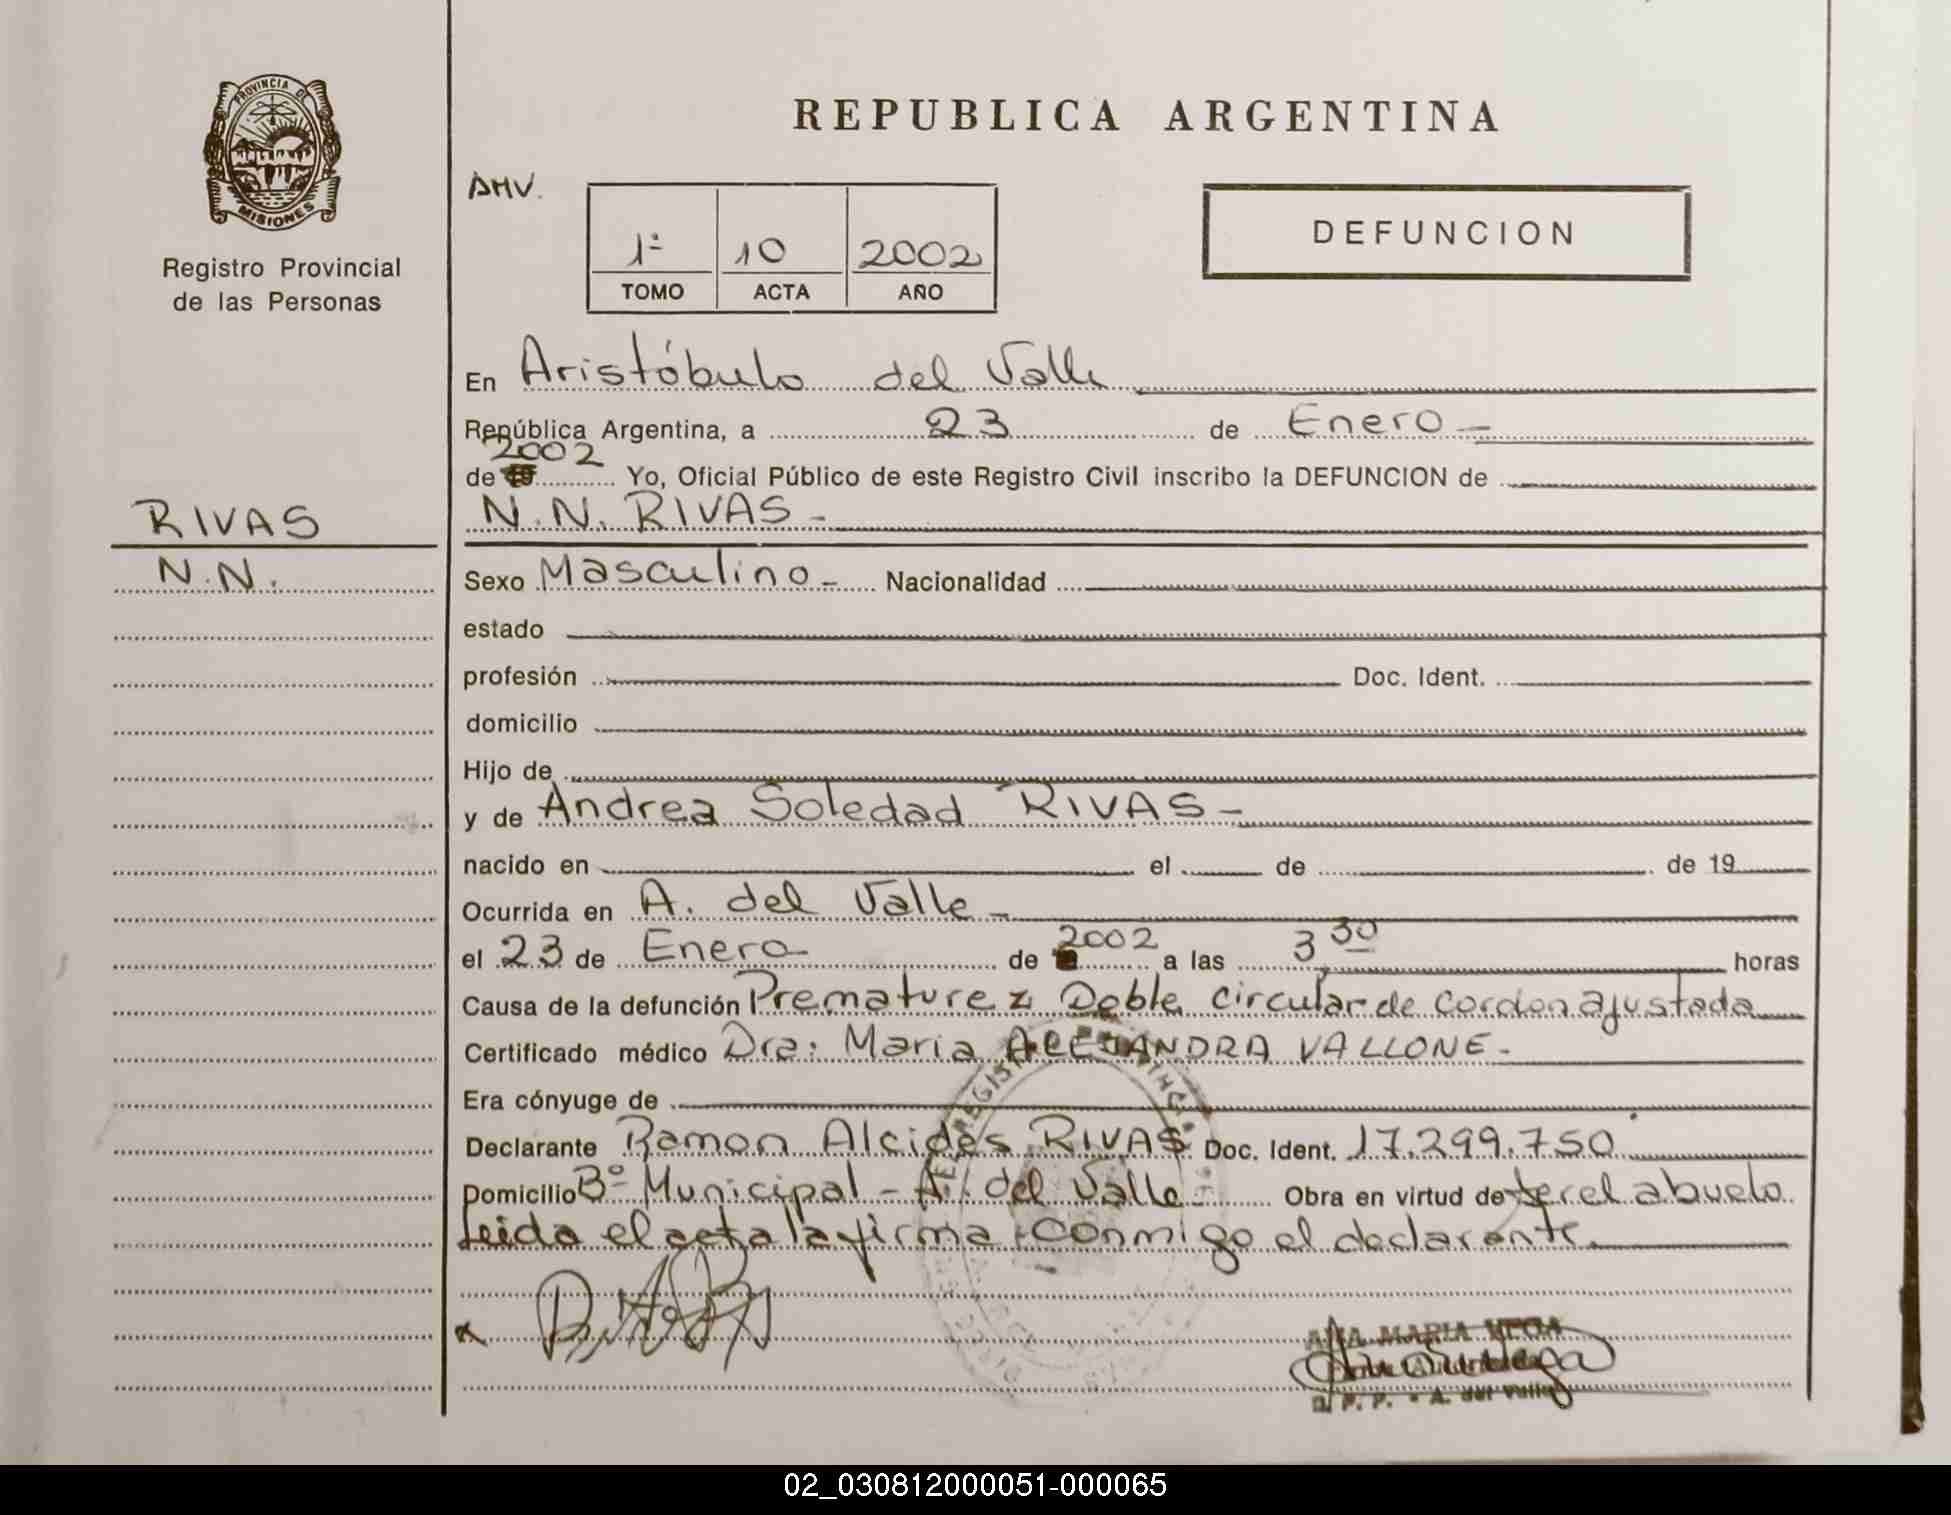 PROVINCIA DE
MISIONES
Registro Provincial
de las Personas
RIVAS
N.N.
REPUBLICA ARGENTINA
AMV.
1º 10 2002
TOMO ACTA AÑO
DEFUNCION
En Aristóbulo del Valle
República Argentina, a 23 de Enero
2002
de 19 Yo, Oficial Público de este Registro Civil inscribo la DEFUNCION de
N.N. RIVAS-
Sexo Masculino- Nacionalidad
estado
profesión Doc. Ident.
domicilio
Hijo de
y de Andrea Soledad RIVAS-
nacido en el de de 19
Ocurrida en A. del Valle-
el 23 de Enero de 2002 a las 3 30 horas
Causa de la defunción Prematurez Doble circular de cordon ajustada
Certificado médico Dra: Maria ALEJANDRA VALLONE-
Era cónyuge de
Declarante Ramon Alcides RIVAS Doc. Ident. 17.299.750
Domicilio Bº Municipal - A. del Valle- Obra en virtud de ser el abuelo
Leida el acta la firma conmigo el declarante.
ANA MARIA VEGA
A. del Valle
02_030812000051-000065